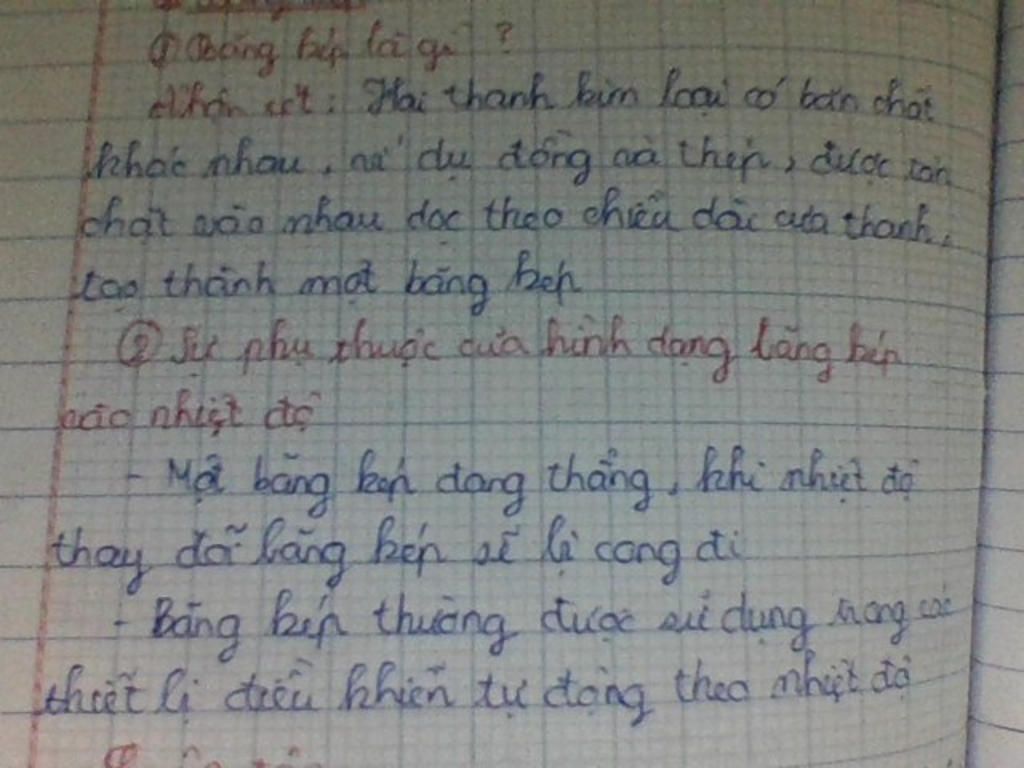 ① Băng kép là gì ?
Nhận xét : Hai thanh kim loại có bản chất
khác nhau, ví dụ đồng và thép, được tán
chặt vào nhau dọc theo chiều dài của thanh,
tạo thành một băng kép
② Sự phụ thuộc của hình dạng băng kép
vào nhiệt độ
- Một băng kép đang thẳng, khi nhiệt độ
thay đổi băng kép sẽ bị cong đi
- Băng kép thường được sử dụng trong các
thiết bị điều khiển tự động theo nhiệt độ